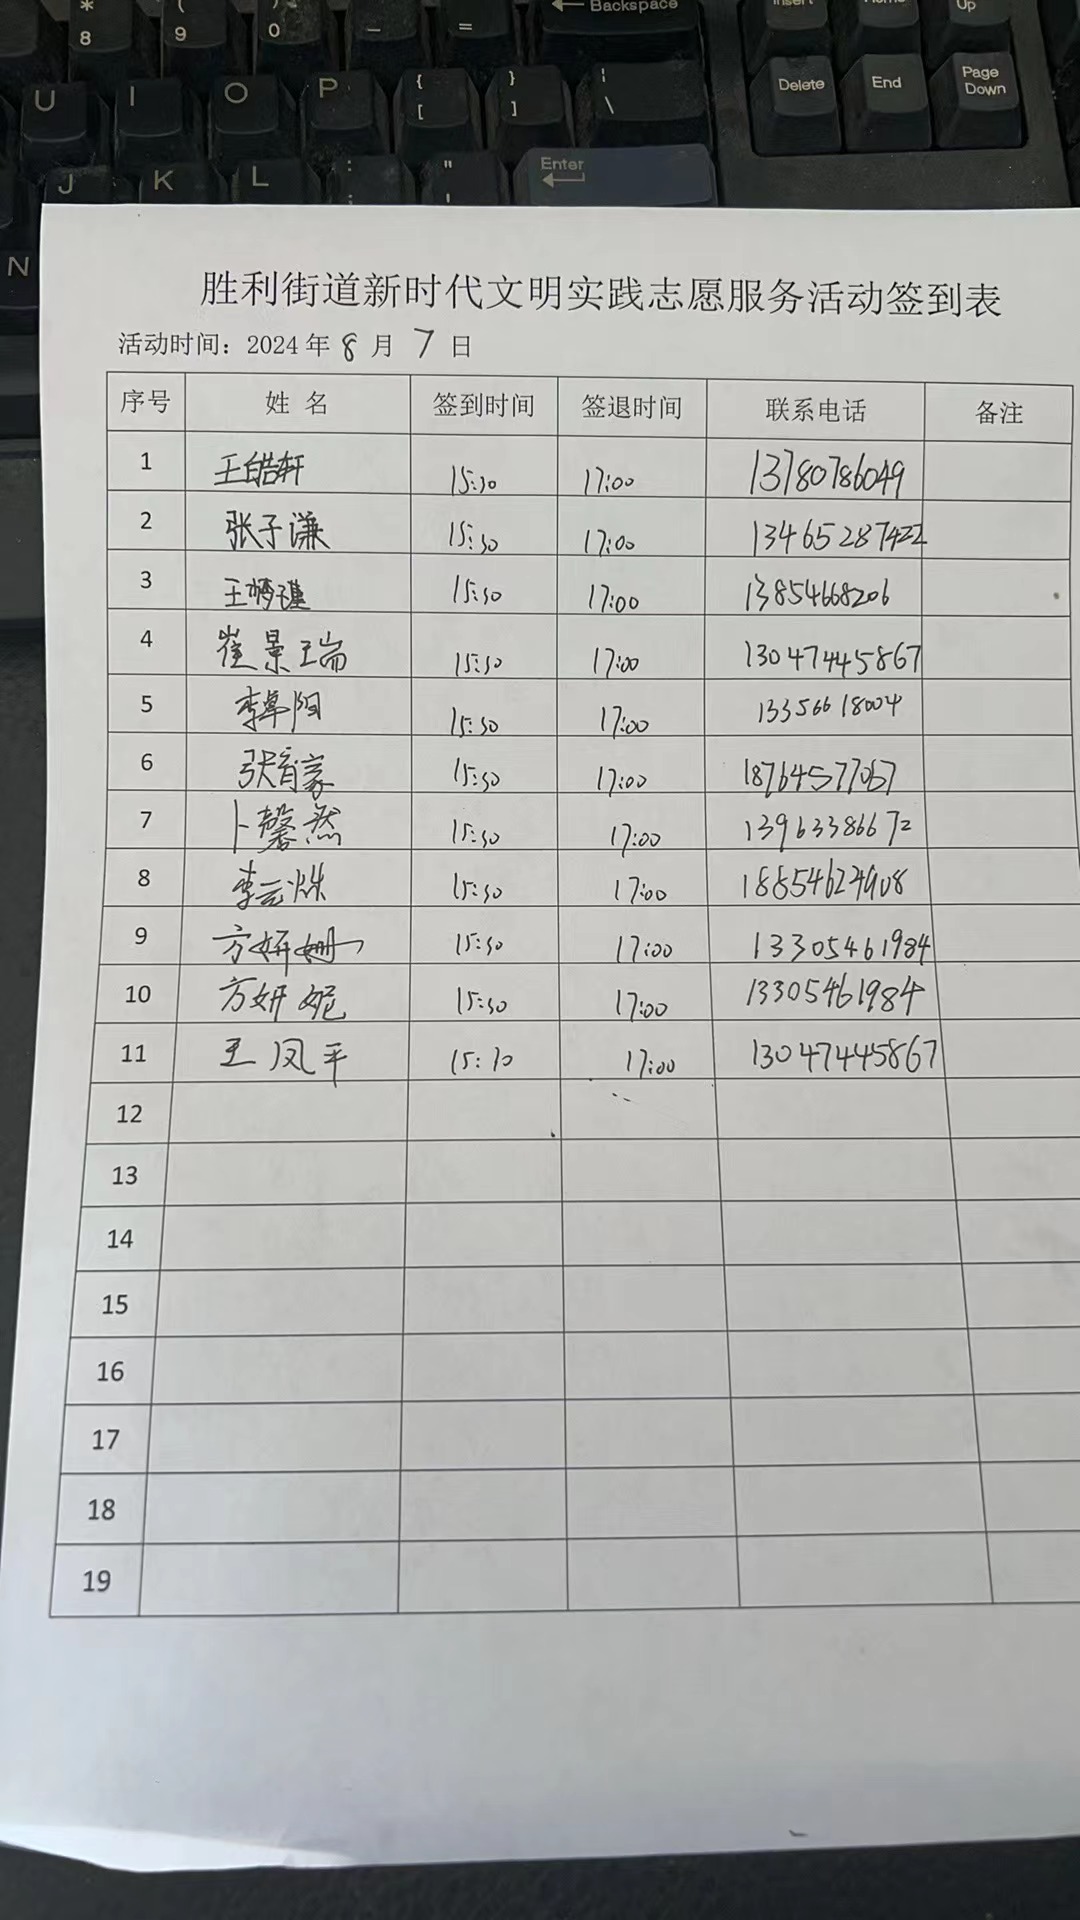 * 8
( 9
) 0
—
=
← Backspace
Insert
Home
Page Up
U
I
O
P
{ [
} ]
¦ \
Delete
End
Page Down
J
K
L
: ;
" '
Enter
N
胜利街道新时代文明实践志愿服务活动签到表
活动时间：2024 年 8 月 7 日
序号 姓 名 签到时间 签退时间 联系电话 备注
1 王皓轩 15:30 17:00 13780786049
2 张子谦 15:30 17:00 13465287422
3 王梦瑾 15:30 17:00 13854668206
4 崔景瑞 15:30 17:00 13047445867
5 李卓阳 15:30 17:00 13356618004
6 张育豪 15:30 17:00 18764577067
7 卜馨然 15:30 17:00 13963386672
8 李云烁 15:30 17:00 18854624908
9 方妍姗 15:30 17:00 13305461984
10 方妍妮 15:30 17:00 13305461984
11 王凤平 15:30 17:00 13047445867
12
13
14
15
16
17
18
19